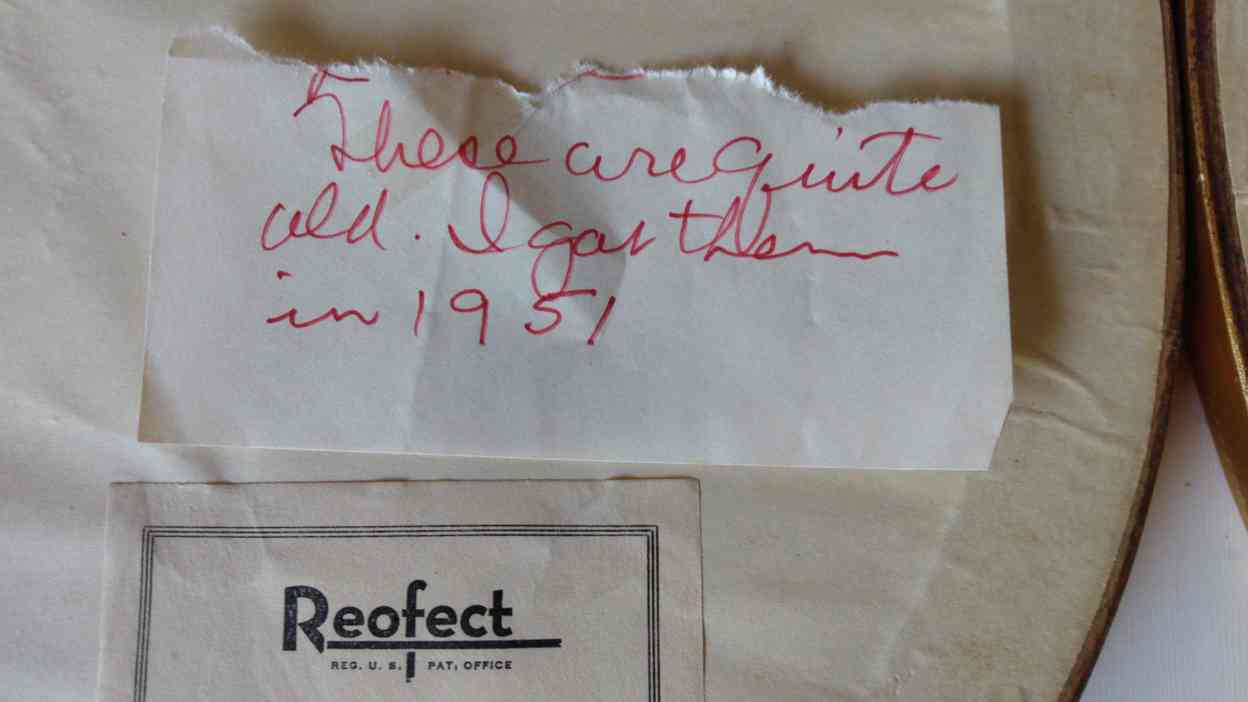 These are quite
old. I got them
in 1951
Reofect
REG. U. S. PAT. OFFICE